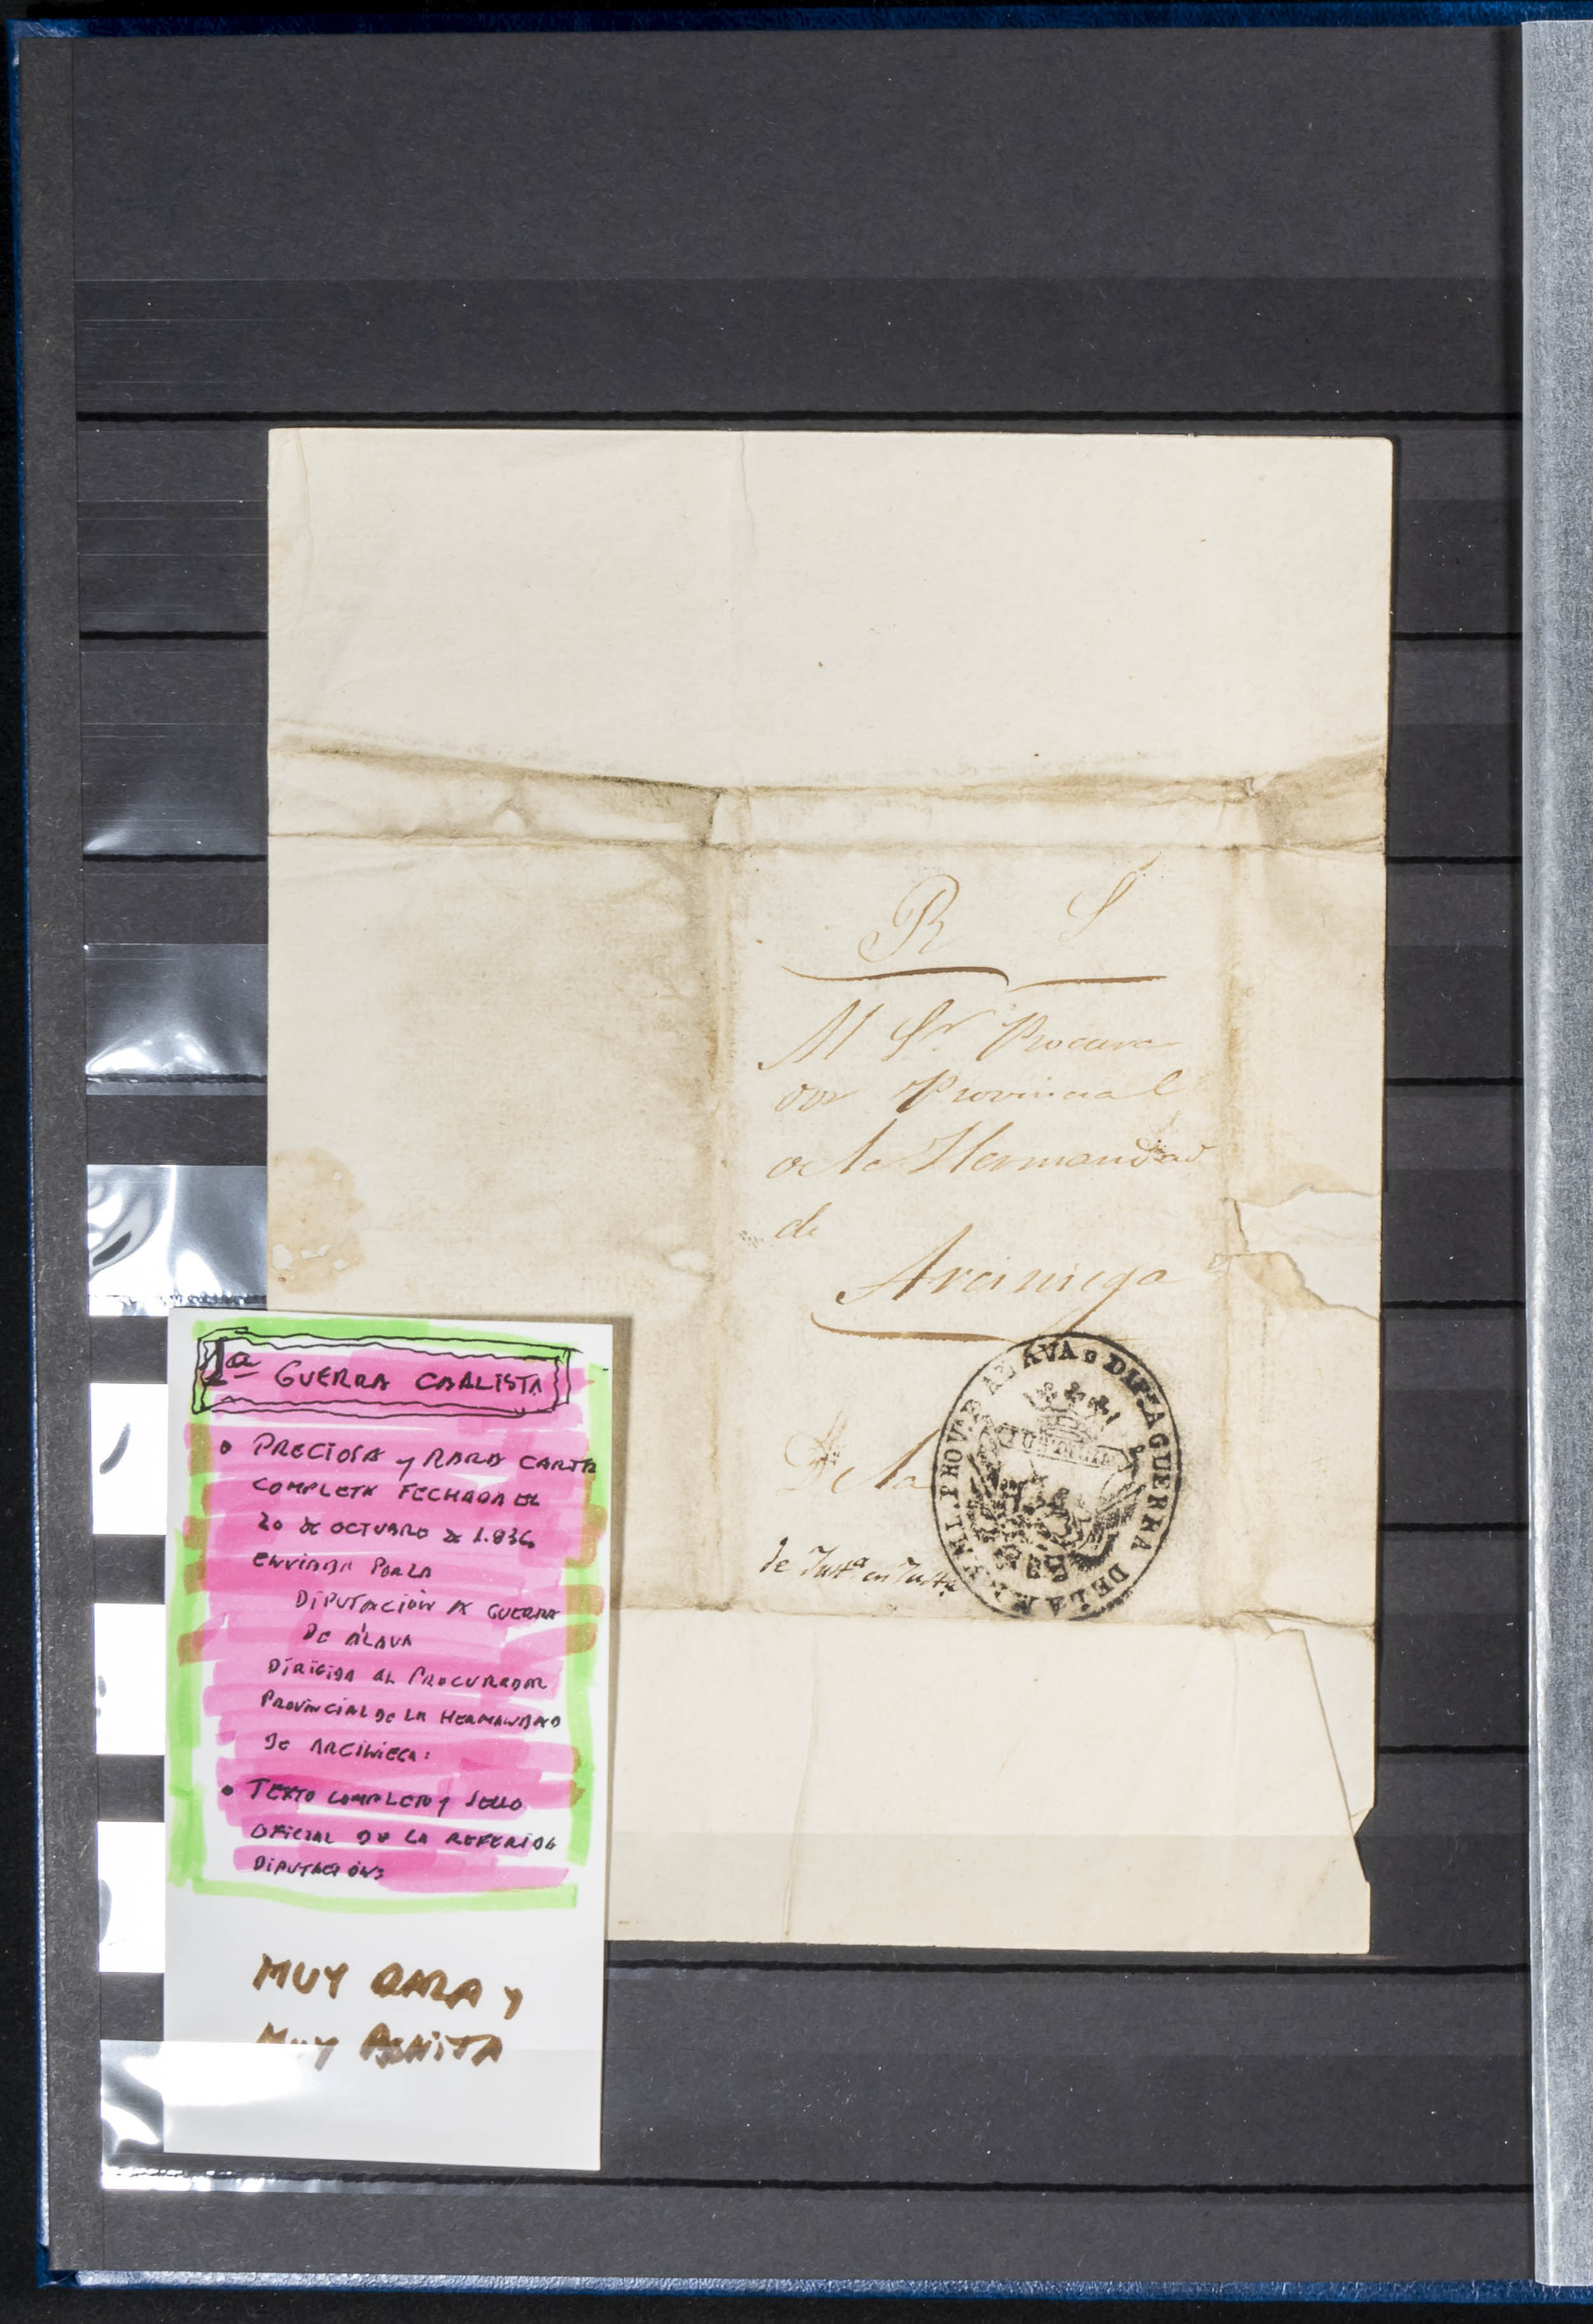 R S
Al Sr. Procura
dor Provincial
de la Hermandad
de
Arciniega
De la
DIPN. A GUERRA DE LA M.N. Y M.L. PROV. D ALAVA
de Justa en Justa
1a GUERRA CARLISTA
• PRECIOSA y RARA CARTA
COMPLETA FECHADA EL
20 DE OCTUBRE DE 1.836
ENVIADA POR LA
DIPUTACION A GUERRA
DE ALAVA
DIRIGIDA AL PROCURADOR
PROVINCIAL DE LA HERMANDAD
DE ARCINIEGA:
• TEXTO COMPLETO y SELLO
OFICIAL DE LA REFERIDA
DIPUTACION
MUY RARA y
MUY BONITA